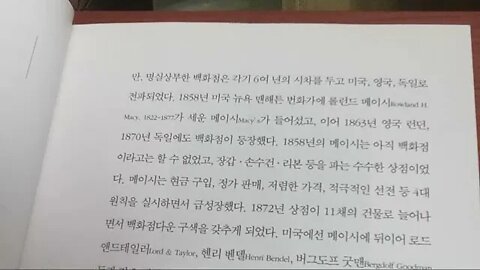 만, 명실상부한 백화점은 각기 6여 년의 시차를 두고 미국, 영국, 독일로
전파되었다. 1858년 미국 뉴욕 맨해튼 번화가에 롤런드 메이시Rowland H.
Macy, 1822-1877가 세운 메이시Macy's가 들어섰고, 이어 1863년 영국 런던,
1870년 독일에도 백화점이 등장했다. 1858년의 메이시는 아직 백화점
이라고는 할 수 없었고, 장갑·손수건·리본 등을 파는 수수한 상점이었
다. 메이시는 현금 구입, 정가 판매, 저렴한 가격, 적극적인 선전 등 4대
원칙을 실시하면서 급성장했다. 1872년 상점이 11채의 건물로 늘어나
면서 백화점다운 구색을 갖추게 되었다. 미국에선 메이시에 뒤이어 로드
앤드테일러Lord & Taylor, 헨리 벤델Henri Bendel, 버그도프 굿맨Bergdolf Goodman